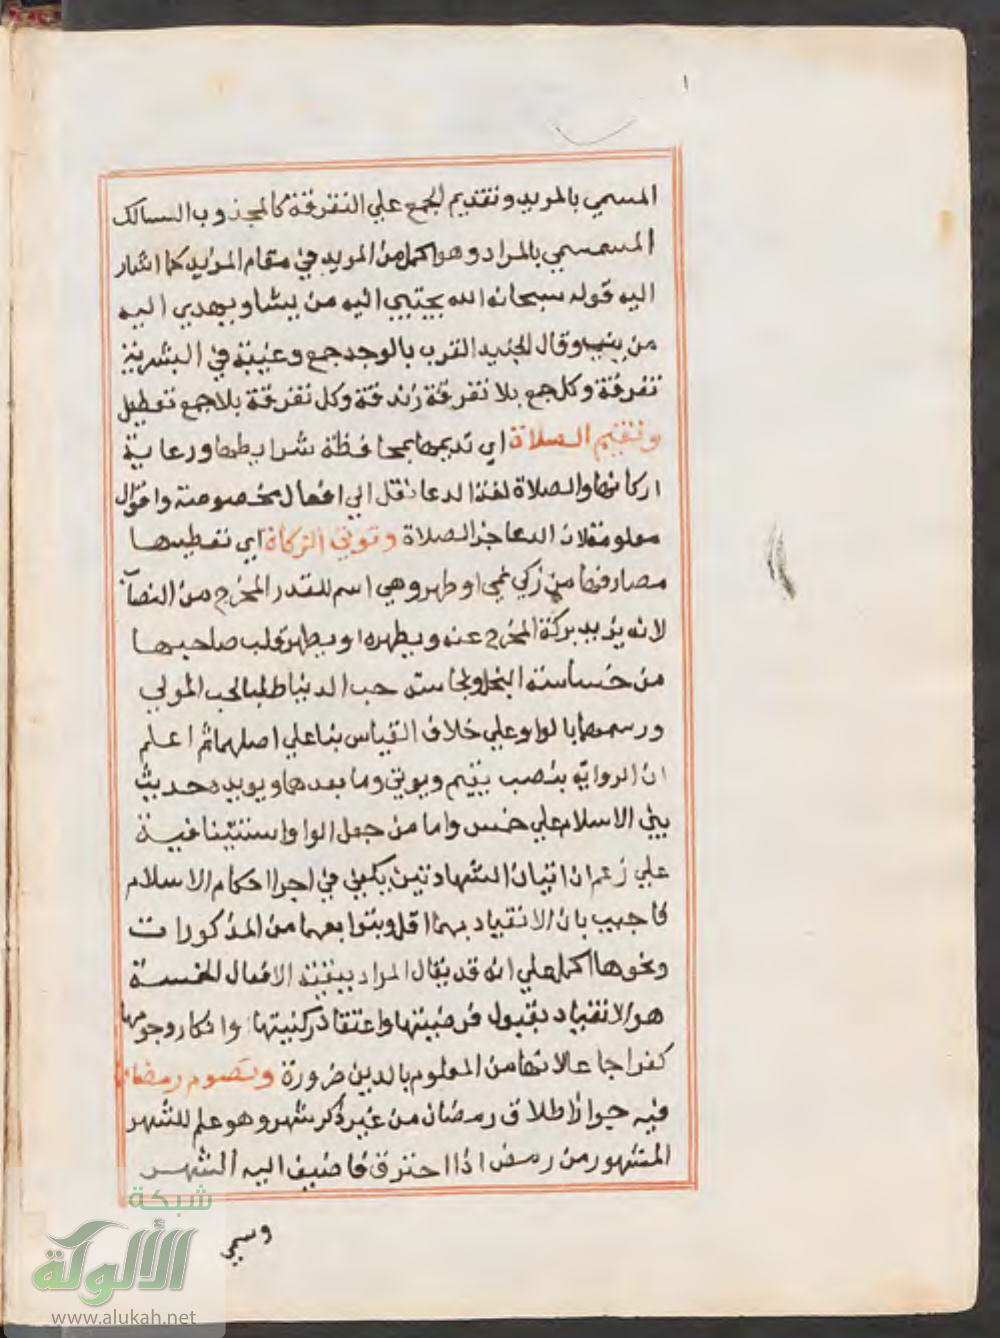 ١
المسمي بالمريد وتقديم الجمع علي التفرقة كالمجذوب السالك
المسمسمي بالمراد وهو اكمل من المريد في مقام المزيد كما اشار
اليه قوله سبحانه الله يجتبي اليه من يشا ويهدي اليه
من ينيب وقال الجنيد القرب بالوجد جمع وغيبته في البشرية
تفرقة وكل جمع بلا تفرقة زندقة وكل تفرقة بلا جمع تعطيل
وتقيم الصلاة اي تديمها بمحافظة شرايطها ورعاية
اركانها والصلاة لغة الدعا نقل الي افعال مخصوصة واقوال
معلومة لان الدعا جز الصلاة وتوتي الزكاة اي تعطيها
مصارفها من زكي نمي او طهر وهي اسم للقدر المخرج من النصاب
لانه يزيد بركة المخرج عنه ويطهره او يطهر قلب صاحبها
من خساسة البخل ونجاسته حب الدنيا طلبا لحب المولي
ورسمها بالواو علي خلاف القياس بنا علي اصلهما ثم اعلم
ان الرواية بنصب يقيم ويوتي وما بعدها ويويده حديث
بني الاسلام علي خمس واما من جعل الواو استينافية
علي زعم ان اتيان الشهادتين يكفي في اجرا احكام الاسلام
فاجيب بان الانقياد بهما اقل وبتوابعهما من المذكورات
ونحوها اكمل علي انه قد يقال المراد ببقية الافعال الخمسة
هو الانقياد بقبول فرضيتها واعتقاد ركنيتها وانكار وجوبها
كفر اجماعا لانها من المعلوم بالدين ضرورة وتصوم رمضان
فيه جواز اطلاق رمضان من غير ذكر شهر وهو علم للشهر
المشهور من رمض اذا احترق فاضيف اليه الشهر
وسمي
شبكة
الألوكة
www.alukah.net